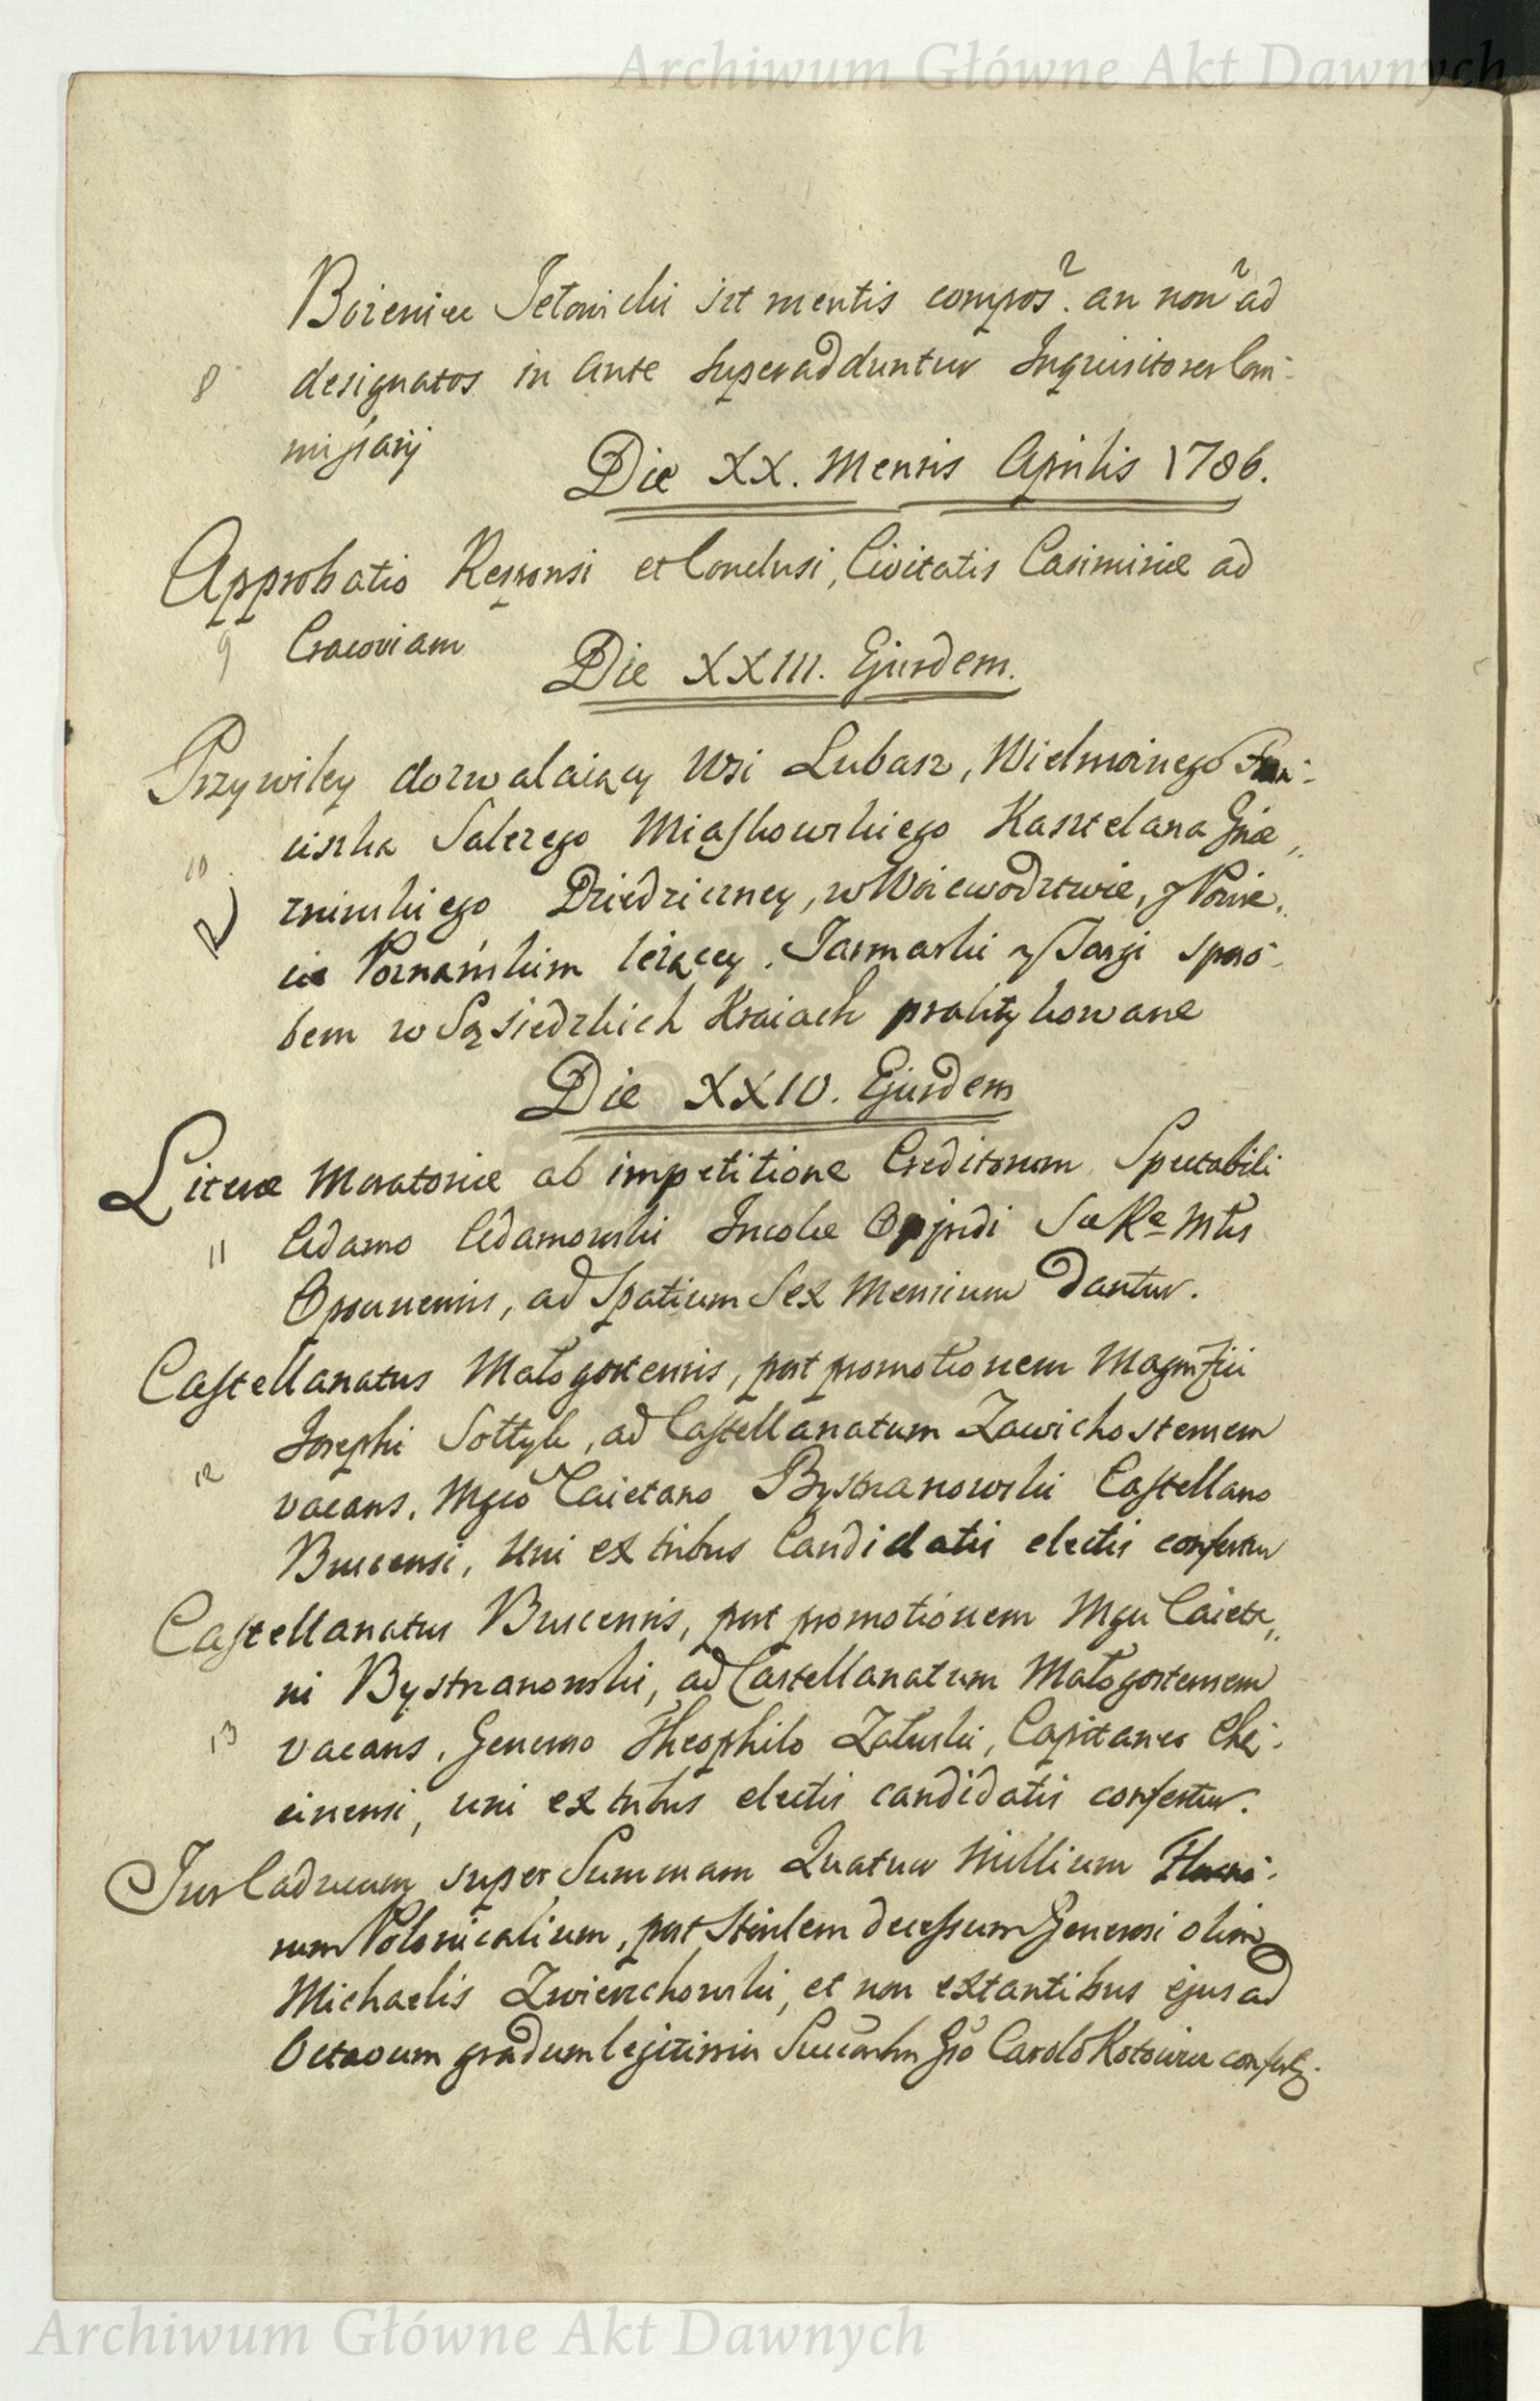 Archiwum Główne Akt Dawnych
Bozeniec Jetowicki sit mentis compos? an non? ad
8 designatos in ante superadduntur Inquisitores Com-
missarij
Die XX. Mensis Aprilis 1786.
Approbatio Responsi et Conclusi, Civitatis Casimiriæ ad
9 Cracoviam
Die XXIII. Ejusdem.
Przywiley dozwalaiący Wsi Lubasz, Wielmożnego Fran-
ciszka Salezego Miaskowskiego Kasztelana Gnie,,
10 znińskiego Dziedziczney, w Woiewodztwie, y Powie,,
R cie Poznańskim leżącey. Jarmarki y Targi sposo-
bem w Sąsiedzkich Kraiach praktykowane
Die XXIV. Ejusdem
Literæ Moratoriæ ab impetitione Creditorum Spectabili
11 Adamo Adamowski Incolæ Oppidi Sæ Ræ Mtis
Opocunensis, ad Spatium Sex Mensium dantur.
Castellanatus Małogostensis, post promotionem Magnifici
Josephi Sołtyk, ad Castellanatum Zawichostensem
12 vacans, Mgco Caietano Bystrzanowski Castellano
Buscensi, Uni ex tribus Candidatis electis confertur
Castellanatus Buscensis, post promotionem Mgci Caieta,,
ni Bystrzanowski, ad Castellanatum Małogostensem
13 vacans, Generoso Theophilo Załuski, Capitaneo Chę-
cinensi, uni ex tribus electis candidatis confertur.
Jus Caducum super Summam Quatuor Millium Floreno-
rum Polonicalium, post sterilem decessum Generosi olim
Michaelis Zwierzchowski, et non extantibus ejus ad
Octavum gradum legitimis Succoribus Gso Carolo confertur.
Archiwum Główne Akt Dawnych